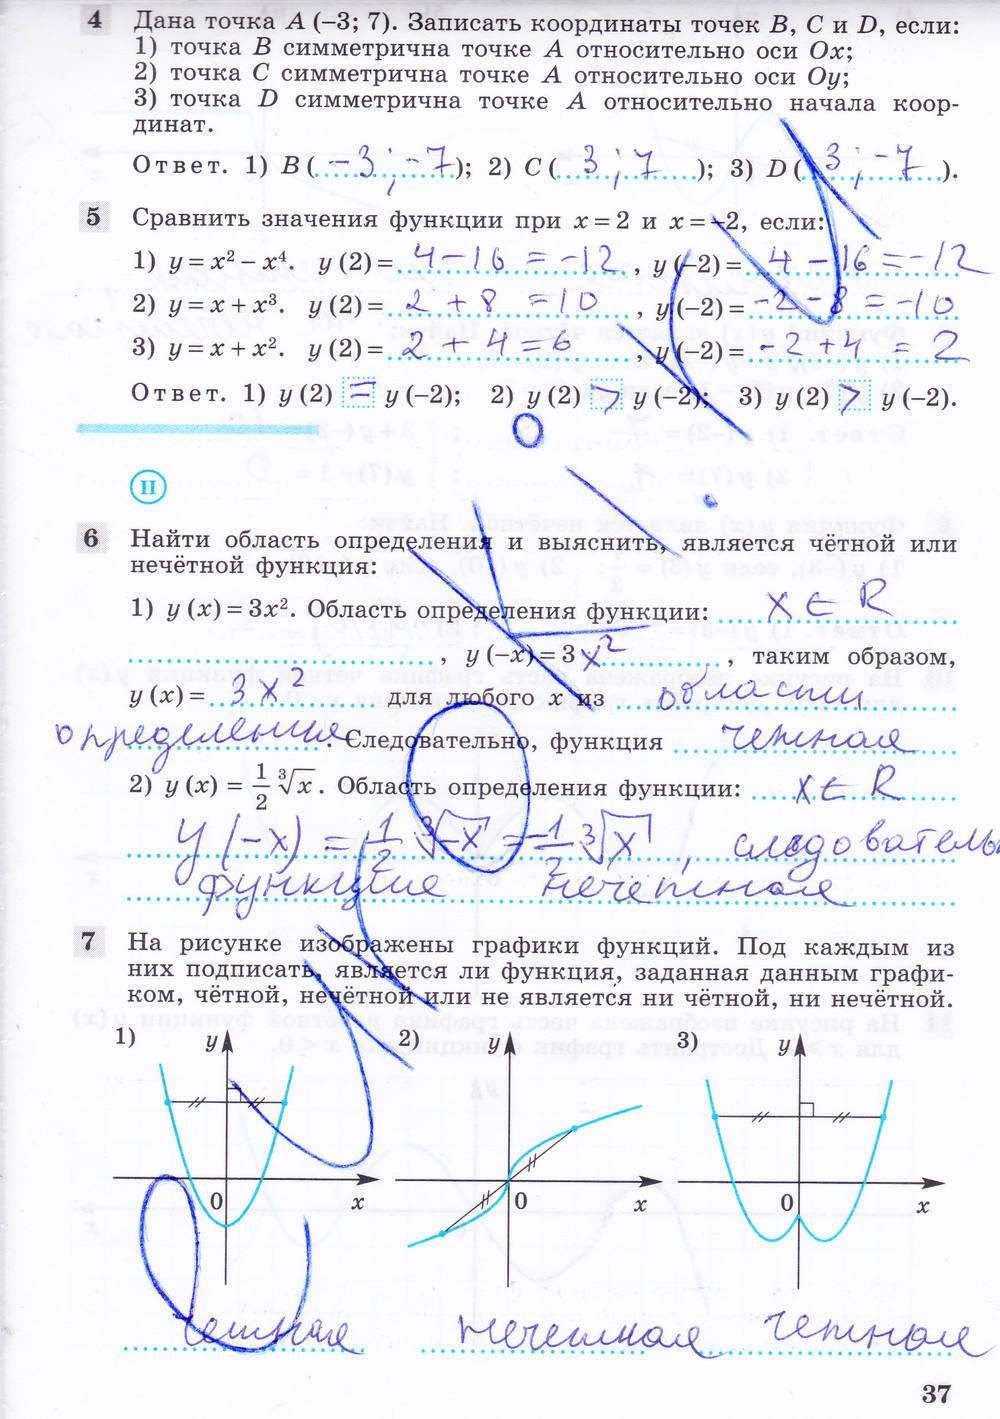 4 Дана точка A (–3; 7). Записать координаты точек B, C и D, если:
1) точка B симметрична точке A относительно оси Ox;
2) точка C симметрична точке A относительно оси Oy;
3) точка D симметрична точке A относительно начала коор-
динат.
Ответ. 1) B (-3; -7); 2) C (3; 7); 3) D (3; -7).
5 Сравнить значения функции при x = 2 и x = –2, если:
1) y = x² – x⁴. y (2) = 4 - 16 = -12, y (–2) = 4 - 16 = -12
2) y = x + x³. y (2) = 2 + 8 = 10, y (–2) = -2 - 8 = -10
3) y = x + x². y (2) = 2 + 4 = 6, y (–2) = -2 + 4 = 2
Ответ. 1) y (2) = y (–2); 2) y (2) > y (–2); 3) y (2) > y (–2).
II
6 Найти область определения и выяснить, является чётной или
нечётной функция:
1) y (x) = 3x². Область определения функции: x ∈ R
, y (–x) = 3 x², таким образом,
y (x) = 3x² для любого x из области
определения. Следовательно, функция четная
2) y (x) = 1/2 ∛x. Область определения функции: x ∈ R
y(-x) = 1/2 ∛-x = -1/2 ∛x, следователь
функция нечетная
7 На рисунке изображены графики функций. Под каждым из
них подписать, является ли функция, заданная данным графи-
ком, чётной, нечётной или не является ни чётной, ни нечётной.
1) y 2) y 3) y
0 x 0 x 0 x
четная нечетная четная
37